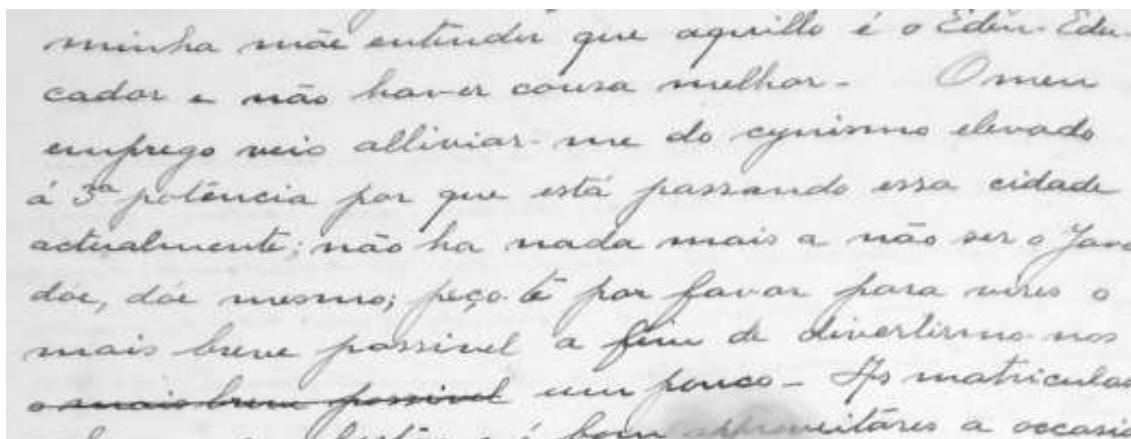 minha mãe entender que aquillo é o Eden-Edu-
cador e não haver cousa melhor - O meu
emprego veio alliviar-me do cynismo elevado
á 3ª potência por que está passando essa cidade
actualmente; não ha nada mais a não ser o
dóe, dóe mesmo; peço-te por favor para vires o
mais breve possivel a fim de divertirmo-nos
o mais breve possivel um pouco - As matriculas
é bom approveitáres a occasiã